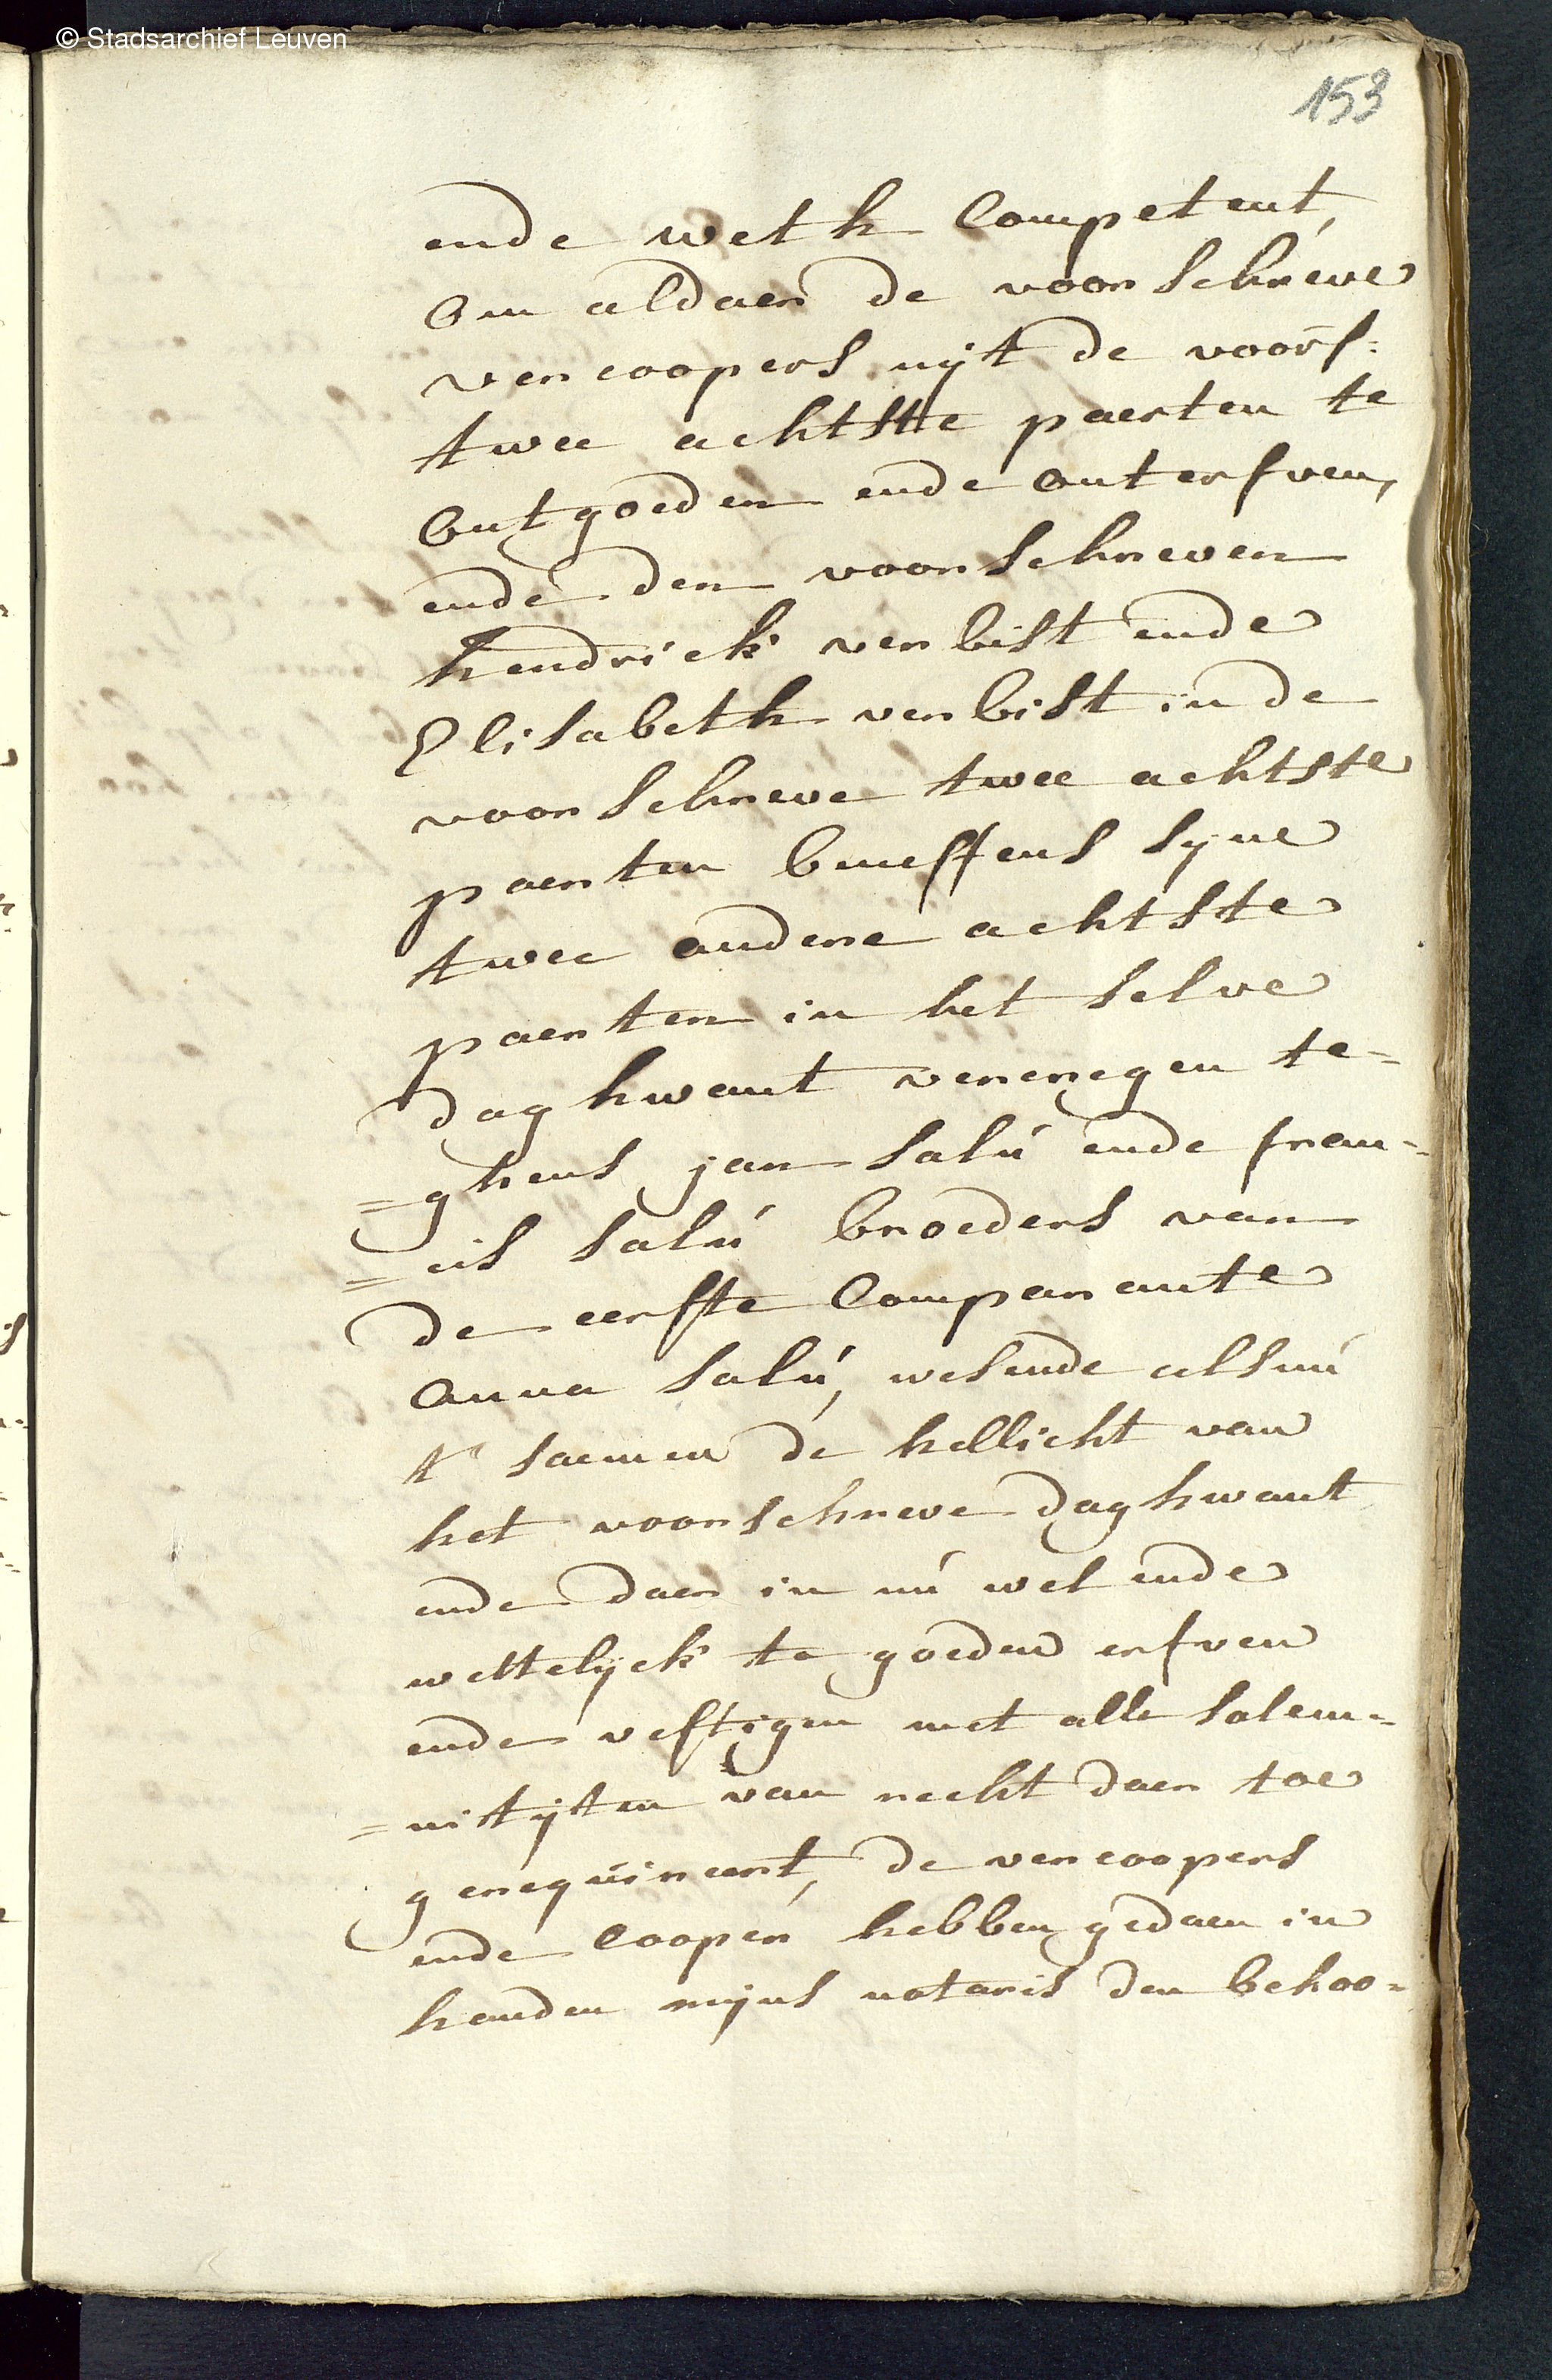 © Stadsarchief Leuven
153
ende weth Competent,
Om aldaer de voorschreve
vercoopers uijt de voors:
twee achtste paerten te
Ontgoeden ende Onterfven,
ende den voorschreven
hendrick verbist ende
Elisabeth verbist in de
voorschreve twee achtste
paerten beneffens syne
twee andere achtste
paerten in het selve
daghwant vercregen te=
=ghens jan Salú ende fran=
=cis Salú broeders van
de eerste Comparante
Anna Salú, wesende alsnú
t' saemen de hellicht van
het voorschreve daghwant
ende daer in nú wel ende
wettelyck te goeden erfven
ende vestigen met alle solem=
=nitijten van recht daer toe
gerequireert, de vercoopers
ende Cooper hebben gedaen in
handen mijns notaris den behoo=